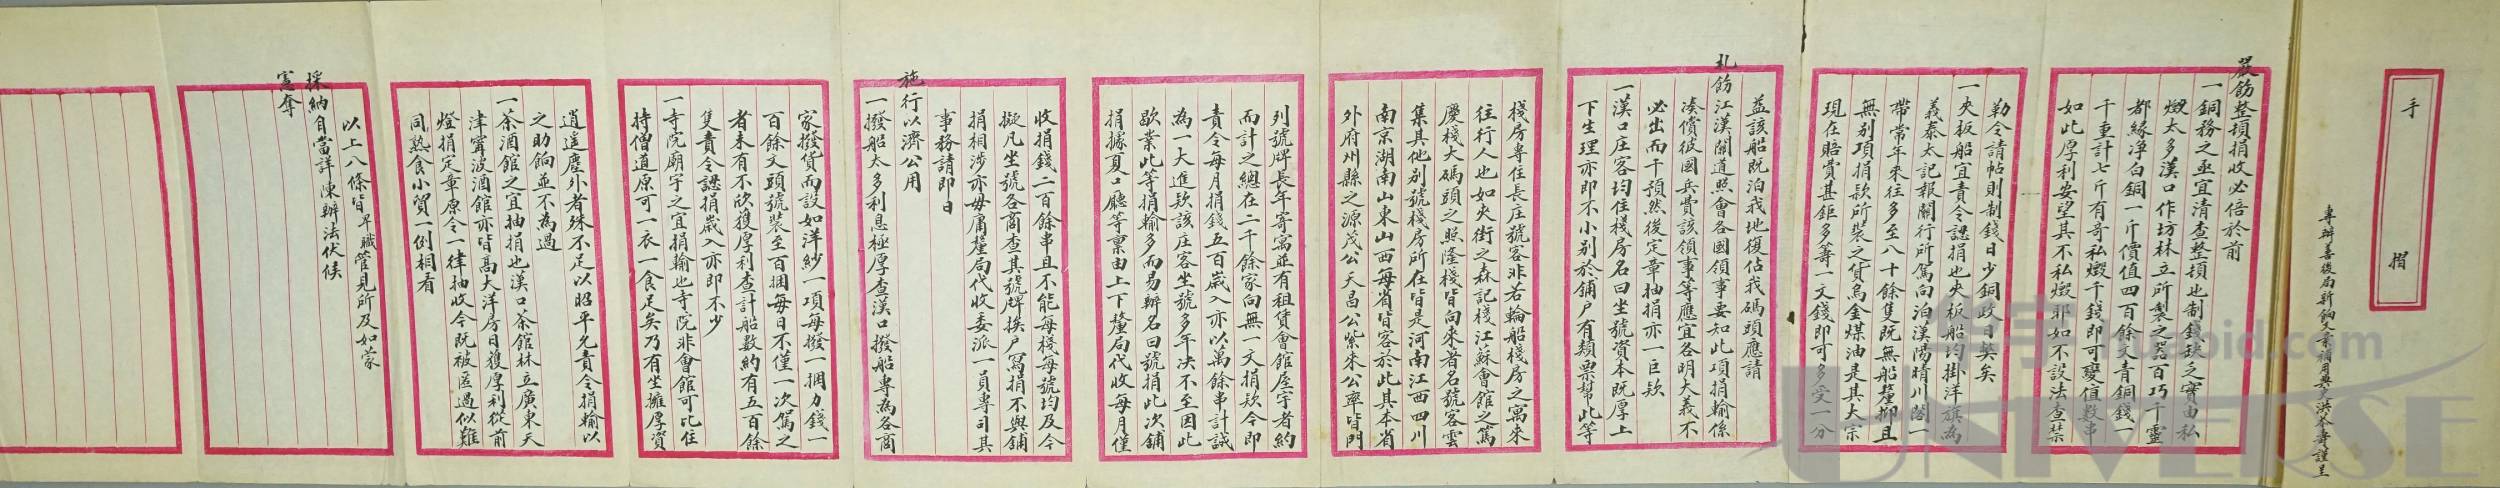 手摺
專辦善後局新餉文案補用典史洪本壽謹呈
嚴飭整頓捐收必倍於前
一銅務之亟宜清查整頓也制錢缺乏實由私
燬太多漢口作坊林立所製之器百巧千靈
都緣净白銅一斤價值四百餘文青銅錢一
千重計七斤有奇私燬千錢即可變值數串
如此厚利安望其不私燬耶如不設法查禁
勒令請帖則制錢日少銅政日獘矣
一夾板船宜責令認捐也夾板船均掛洋旗為
義泰太記報關行所駕向泊漢陽晴川閣一
帶常年來往多至八十餘隻既無船釐抑且
無別項捐款所裝之貨烏金煤油是其大宗
現在賠賞甚鉅多籌一文錢即可多受一分
益該船既泊我地復估我碼頭應請
札飭江漢關道照會各國領事要知此項捐輸係
湊償彼國兵費該領事等應宜各明大義不
必出而干預然後定章抽捐亦一巨欵
一漢口庄客均住棧房名曰坐號資本既厚上
下生理亦即不小别於舖户有類票幫此等
棧房專住長庄號客非若輪船棧房之寓來
往行人也如夾街之森記棧江蘇會館之篤
慶棧大碼頭之照隆棧皆向來著名號客雲
集其他別號棧房所在皆是河南江西四川
南京湖南山東山西每省皆客於此其本省
外府州縣之源茂公天昌公紫來公率皆門
列號牌長年寄寓並有租賃會館屋宇者約
而計之總在二千餘家向無一文捐欵今即
責令每月捐錢五百歲入亦以萬餘串計誠
為一大進欵該庄客坐號多年决不至因此
歇業此等捐輸多而易辦名曰號捐此次舖
捐據夏口廳等稟由上下釐局代收每月僅
收捐錢二百餘串且不能每棧每號均及今
擬凡坐號各商查其號牌挨户寫捐不與舖
捐相涉亦毋庸釐局代收委派一員專司其
事務請即日
施行以濟公用
一撥船太多利息極厚查漢口撥船專為各商
家撥貨而設如洋紗一項每撥一捆力錢一
百餘文頭號裝至百捆每日不僅一次駕之
者未有不欣獲厚利查計船數約有五百餘
隻責令認捐歲入亦即不少
一寺院廟宇之宜捐輸也寺院非會館可比住
持僧道原可一衣一食足矣乃有坐擁厚資
逍遥塵外者殊不足以昭平允責令捐輸以
之助餉並不為過
一茶酒館之宜抽捐也漢口茶館林立廣東天
津甯波酒館亦皆高大洋房日獲厚利從前
燈捐定章原令一律抽收今既被匿過似難
同熟食小貿一例相看
以上八條皆卑職管見所及如蒙
採納自當詳陳辦法伏候
憲奪